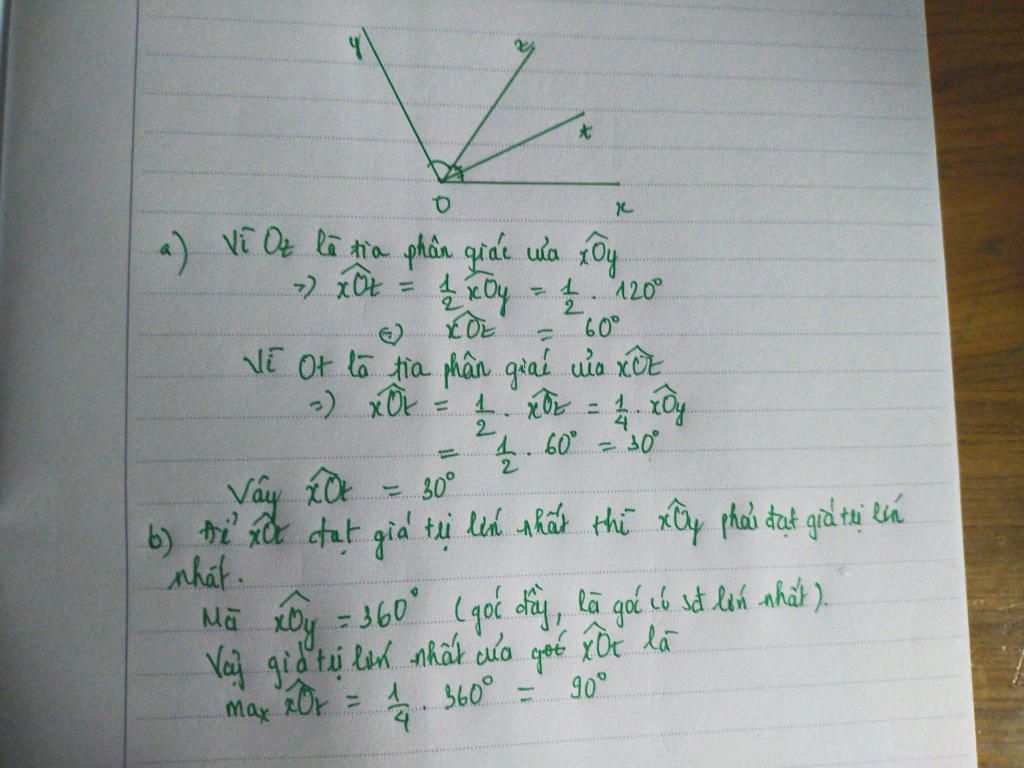 y
z
t
O
x
a) Vì Oz là tia phân giác của xÔy
=> xÔz = 1/2 xÔy = 1/2 . 120°
<=> xÔz = 60°
Vì Ot là tia phân giác của xÔz
=> xÔt = 1/2 . xÔz = 1/4 . xÔy
= 1/2 . 60° = 30°
Vậy xÔt = 30°
b) Để xÔt đạt giá trị lớn nhất thì xÔy phải đạt giá trị lớn
nhất.
Mà xÔy = 360° (góc đầy, là góc có sđ lớn nhất).
Vậy giá trị lớn nhất của góc xÔt là
max xÔt = 1/4 . 360° = 90°